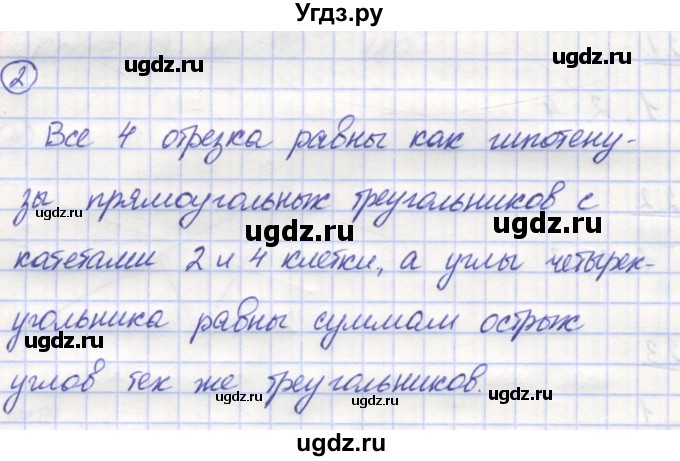 Угдз.ру
ugdz.ru ugdz.ru
2
Все 4 отрезка равны как гипотену-
ugdz.ru ugdz.ru
зы прямоугольных треугольников с
ugdz.ru ugdz.ru
катетами 2 и 4 клетки, а углы четырех-
ugdz.ru
угольника равны суммам острых
ugdz.ru ugdz.ru
углов тех же треугольников.
ugdz.ru ugdz.ru
ugdz.ru